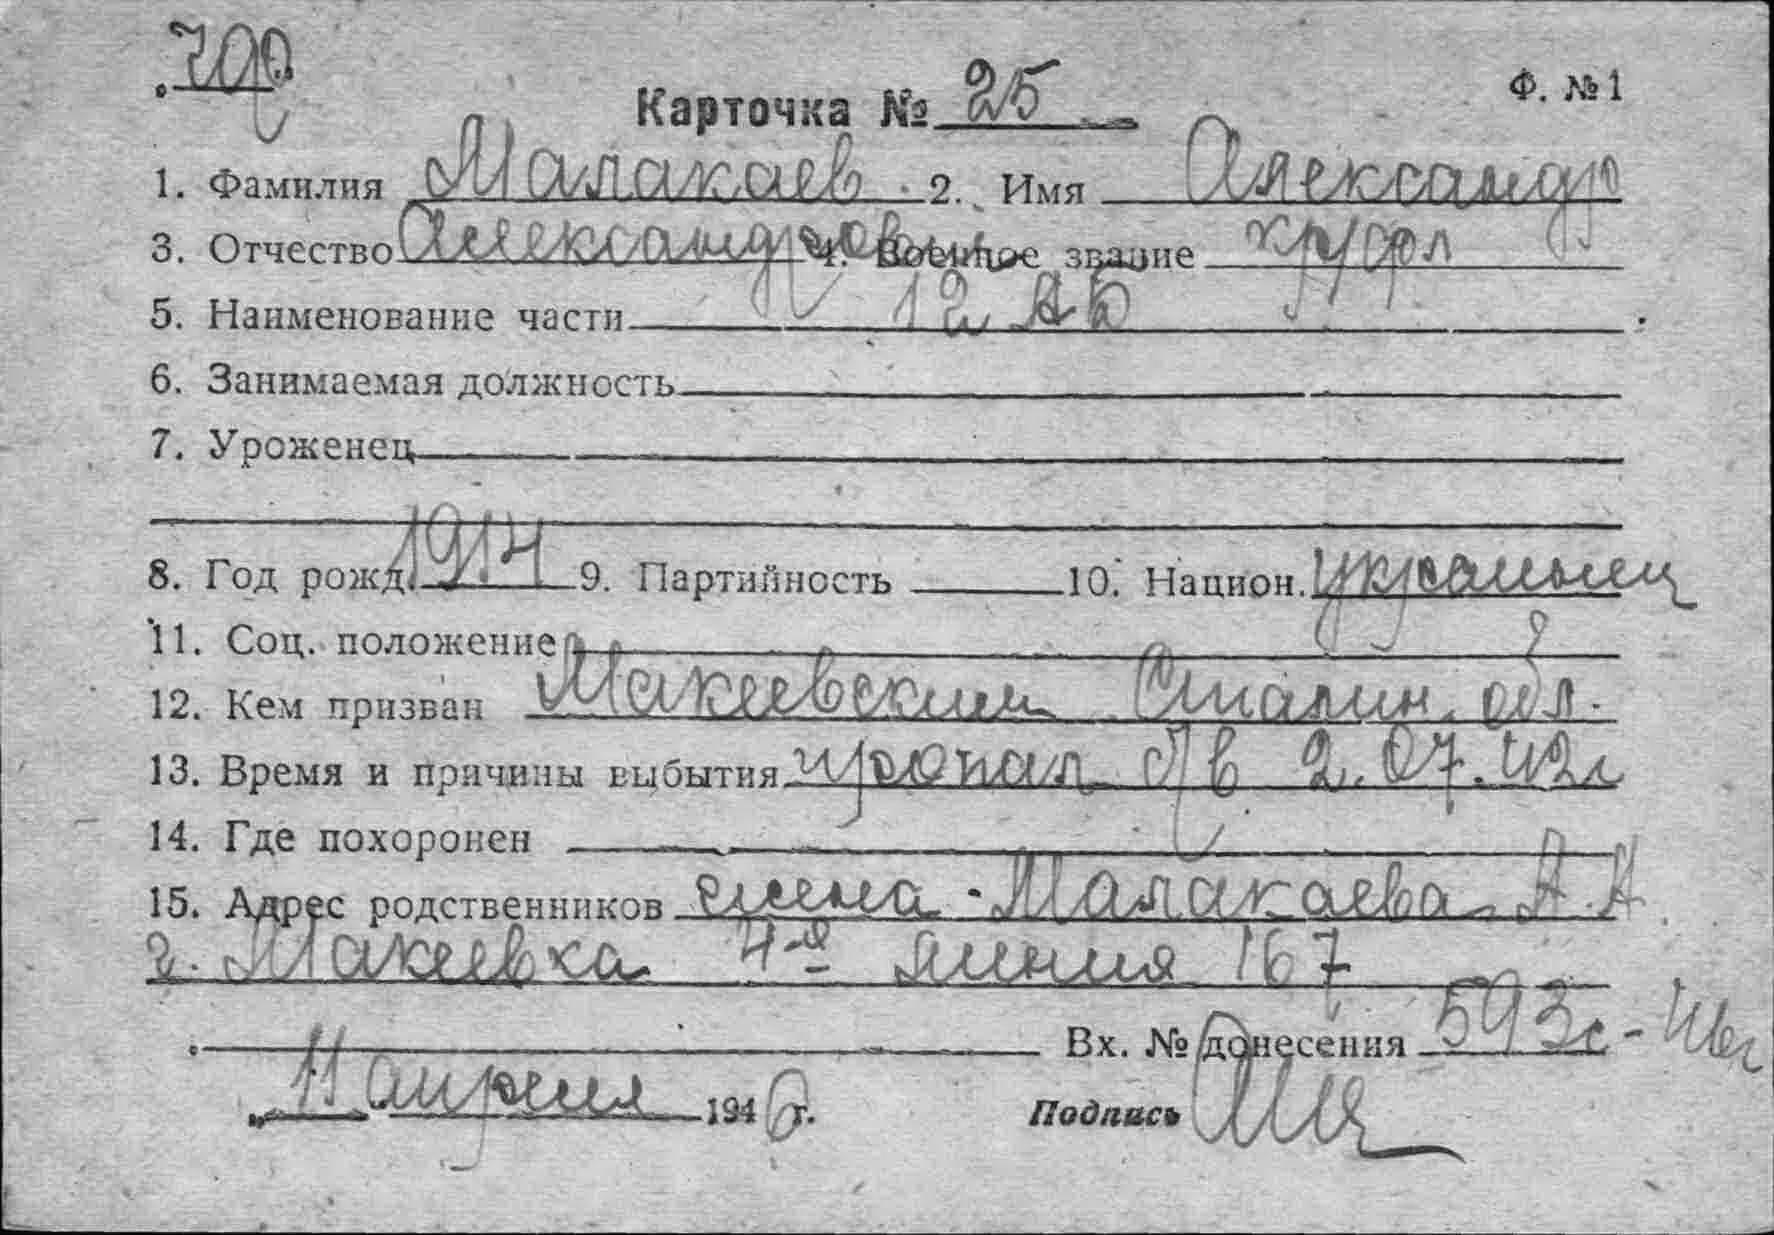 Карточка № 25
Ф. № 1
1. Фамилия Малакаев 2. Имя Александр
3. Отчество Александрович 4. Военное звание кр/фл
5. Наименование части 12 АБ
6. Занимаемая должность
7. Уроженец
8. Год рожд. 1914 9. Партийность 10. Национ. украинец
11. Соц. положение
12. Кем призван Макеевским Сталин. обл.
13. Время и причины выбытия пропал б/в 2.07.42г
14. Где похоронен
15. Адрес родственников жена - Малакаева А. А.
г. Макеевка 4-я линия 167
Вх. № донесения 593с - 46г
„11 апреля 1946 г. Подпись